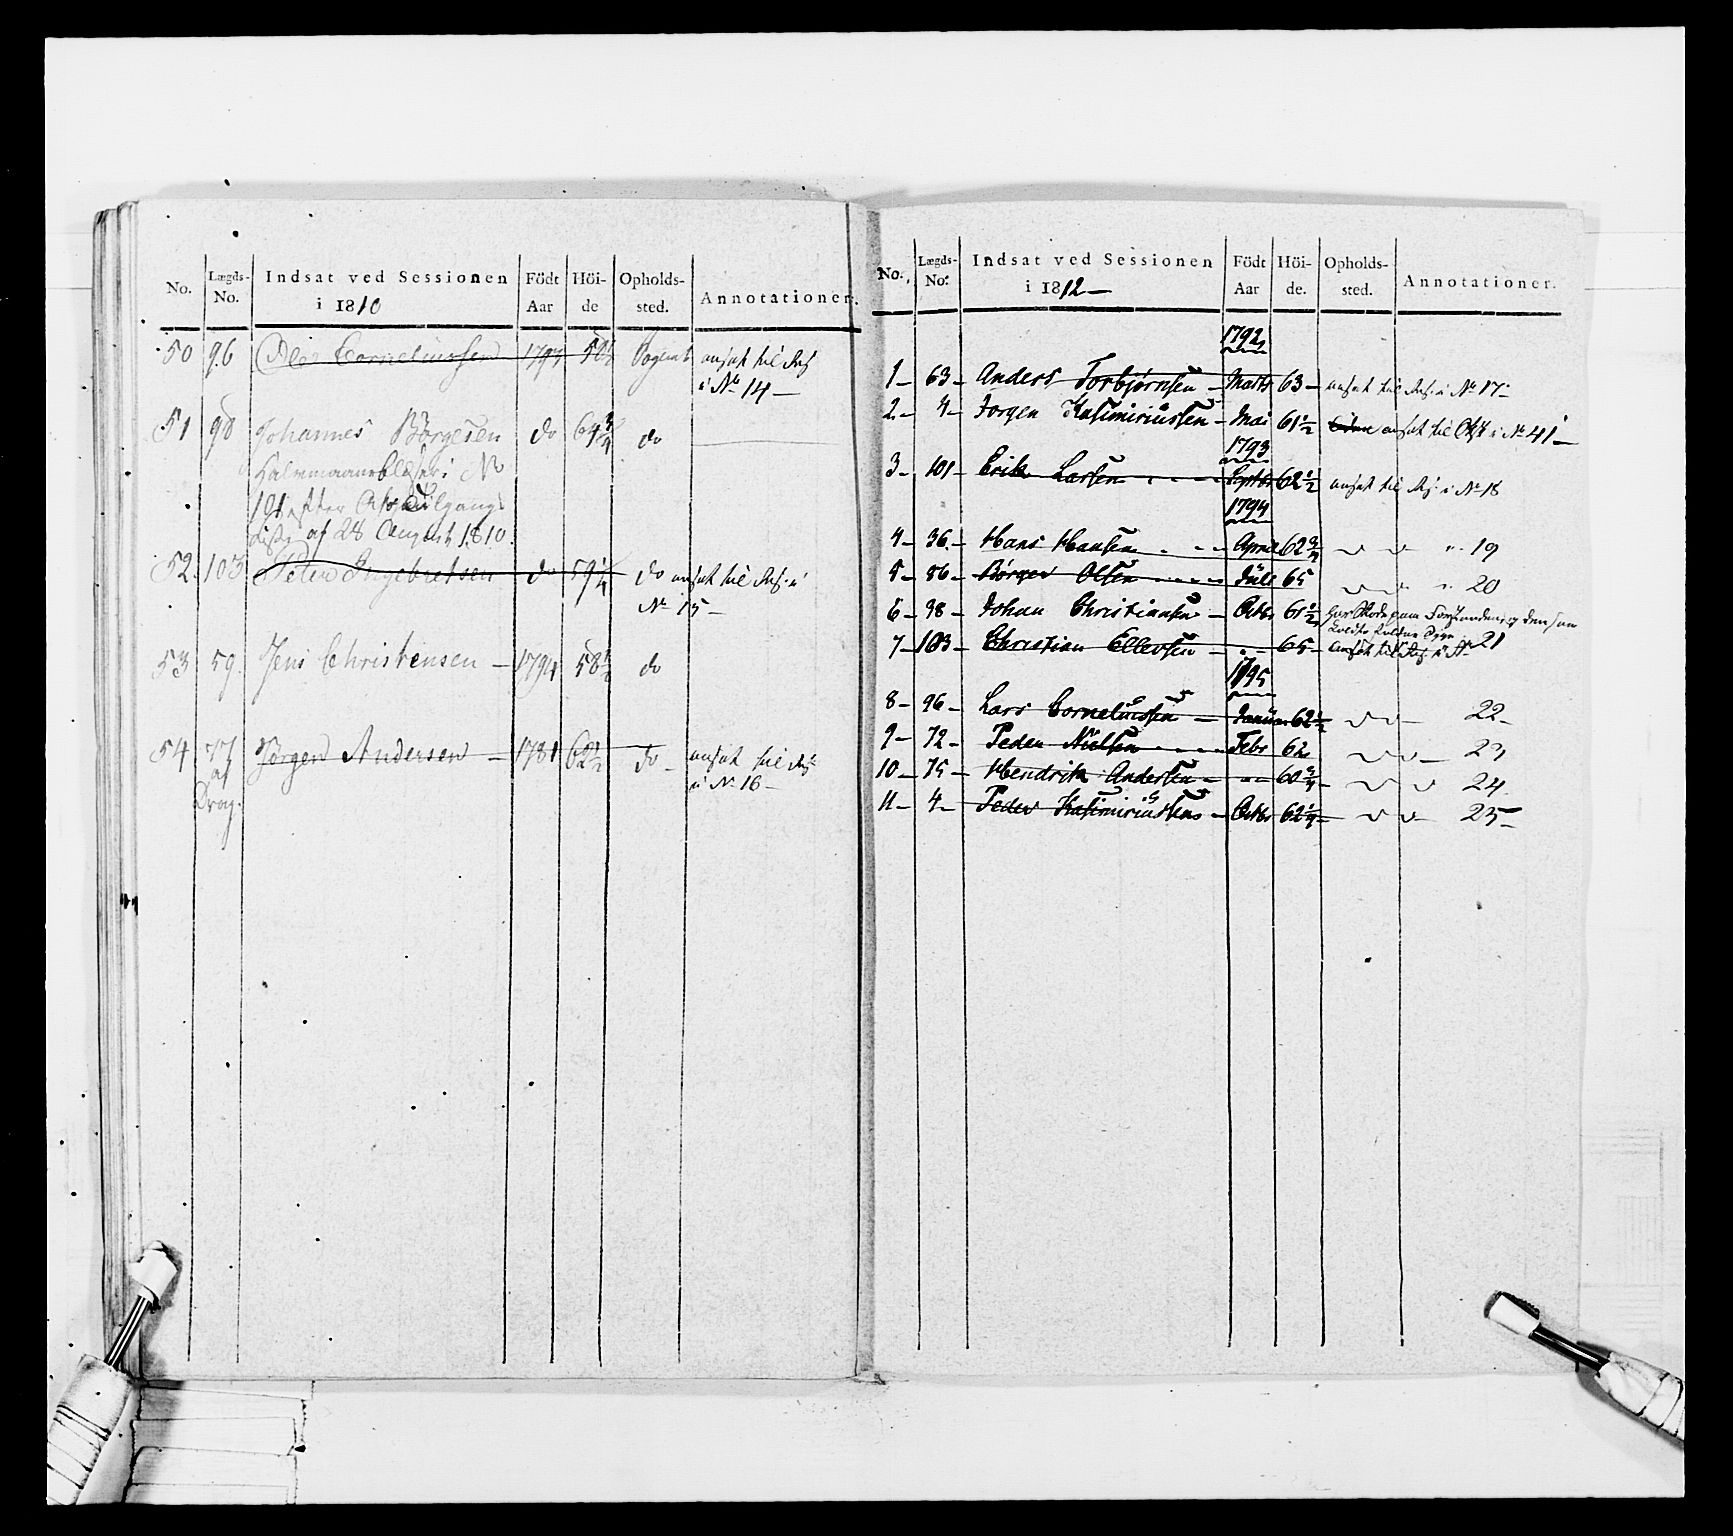 No. Lægds- No. Indsat ved Sessionen i 1810 Födt Aar Höi- de Opholds- sted. Annotationer.
50 96 Ole Corneliussen 1794 Sogne
ansat til Res
i No 14
51 98 Johannes Börgesen do 64 3/4 do
No
af 28 August 1810.
52. 103 Peter Ingebretsen do 59 1/4 do ansat til Res. i
No 15
53 59. Jens Christensen 1794 58 1/2 do
54 77 Jörgen Andersen 1781 62 1/2 do ansat til Res
af i No 16
Drag.
No. Lægds- No. Indsat ved Sessionen i 1812 Födt Aar Höi- de. Opholds- sted. Annotationer.
1792
1 63 Anders Torbjørnsen Marts 63 ansat til Res. i No 17
2 4 Jörgen Kasimiriussen Mai 61 1/2 ansat til i No 41
1793
3 101 Erik Larsen Septbr 62 1/2 ansat til Res. i No 18
1794
4 36 Hans Hansen April 62 3/4 19
5 86 Börger Olsen Juli 65 20
6 38 Johan Christiansen Octbr 61 1/2
7 103 Christian Ellevsen 65 ansat til Res i No 21
1795
8 96 Lars Corneliussen Januar 62 1/2 22
9 72 Peder Nielsen Febr 62 23
10 75 Hendrik Andersen 60 3/4 24
11 4 Peder Kasimiriussen Octbr 62 1/4 25